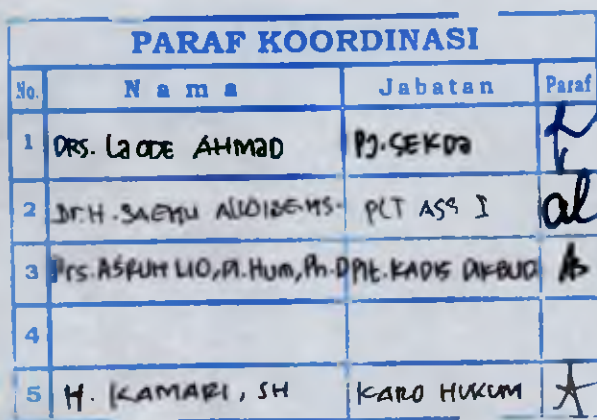 PARAF KOORDINASI
No. Nama Jabatan Paraf
1 DRS. LaODE AHMaD PJ. SEKDa
2 Dr. H. SAEMU PLT ASS I
3 Drs. ASRUN LIO, M. Hum, Ph.D Plt. KADIS DIKBUD
4
5 H. KAMARI, SH KARO HUKUM